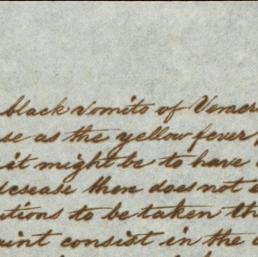 black vomito of Veracr
se as the yellow fever
it might be to have
desease then does not e
utions to be taken th
aint consist in the